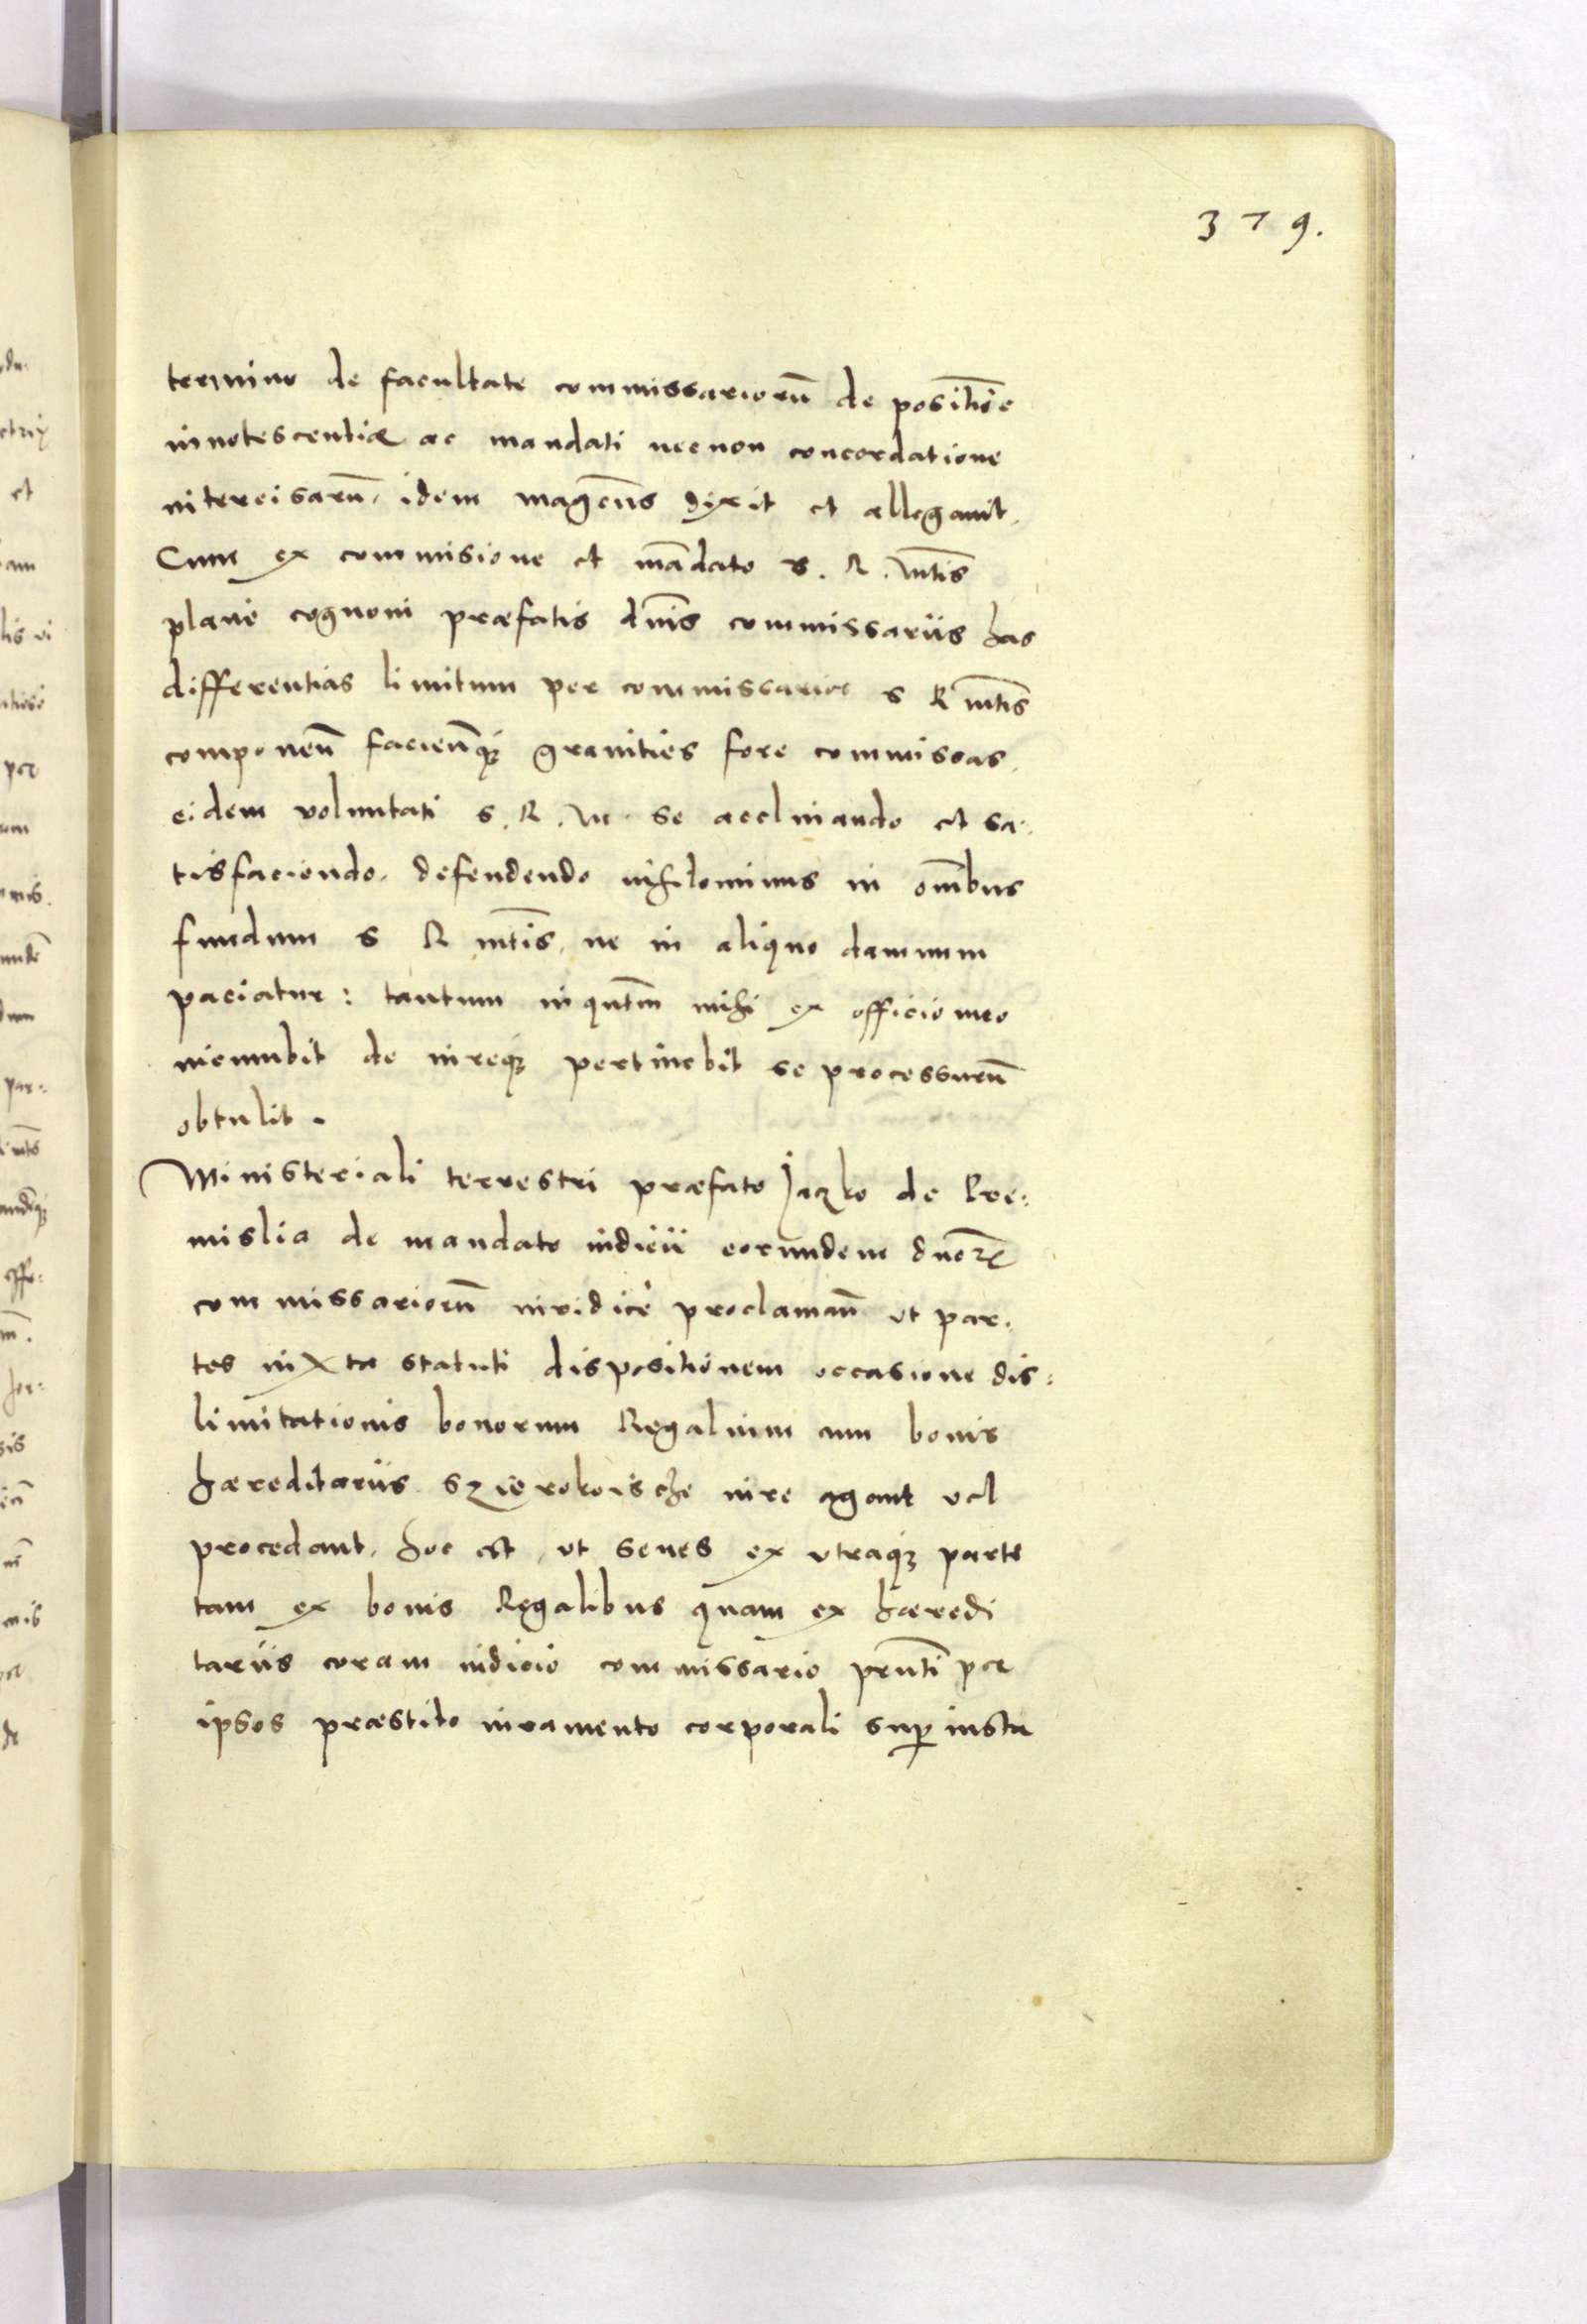 379.
termino de facultate commissariorū de positiōe
innotescentiæ ac mandati necnon concordatione
intercisarū. idem magcūs dixit et allegauit.
Cum ex commisione et mādato S. R. Mtis
plane cognoui præfatis dnīs commissariis has
differentias limitum per commissarios S R mtis
componeñ facieñq; granities fore commissas.
eidem voluntati S. R. M. se acclinando et sa-
tisfaciendo. defendendo nihilominus in omībus
fundum S R mtis, ne in aliquo damnum
paciatur: tantum inqutm mihi ex officio meo
incumbit de iureq; pertinebit se processurū
obtulit.
Ministeriali terrestri præfato Jaczko de Pre:
mislia de mandato iudicii eorundem dnorȝ
commissariorū iuridice proclamañ ut par-
tes iuxta statuti dispositionem occasione dis:
limitationis bonorum Regalium cum bonis
hæreditariis Szierokoische iure agant vel
procedant, hoc est, ut senes ex vtraq; parte
tam ex bonis Regalibus quam ex hæredi
tariis coram iudicio commissario prntī per
ipsos præstito iuramento corporali sup iusta